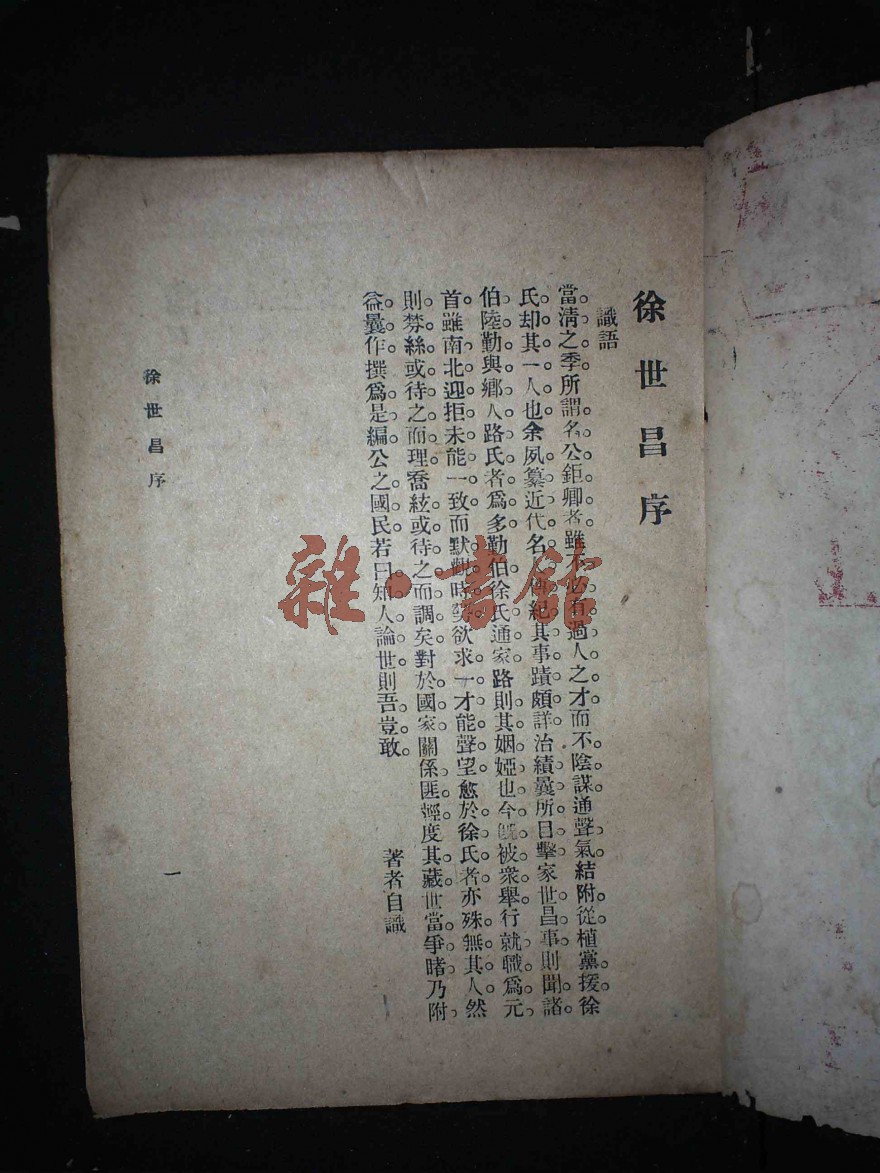 徐世昌序
識語
當清之季。所謂名公鉅卿者。雖不必有過人之才。而不陰謀通聲氣。結附從。植黨援。徐
氏却其一人也。余夙纂近代名傳。紀其事蹟頗詳。治績曩所目擊。家世昌事。則聞諸
伯陸勤與鄉人路氏者爲多。勤伯徐氏通家。路則其姻婭也。今旣被衆舉。行就職爲元
首。雖南北迎拒。未能一致。而默觀時勢。欲求一才能聲望。愈於徐氏者。亦殊無其人。然
則棼絲或待之而理。喬絃或待之而調矣。對於國家關係匪輕。度其藏世當爭睹。乃附
益曩作。撰爲是編。公之國民。若曰知人論世。則吾豈敢。
著者自識
徐世昌序
一
雜·書館